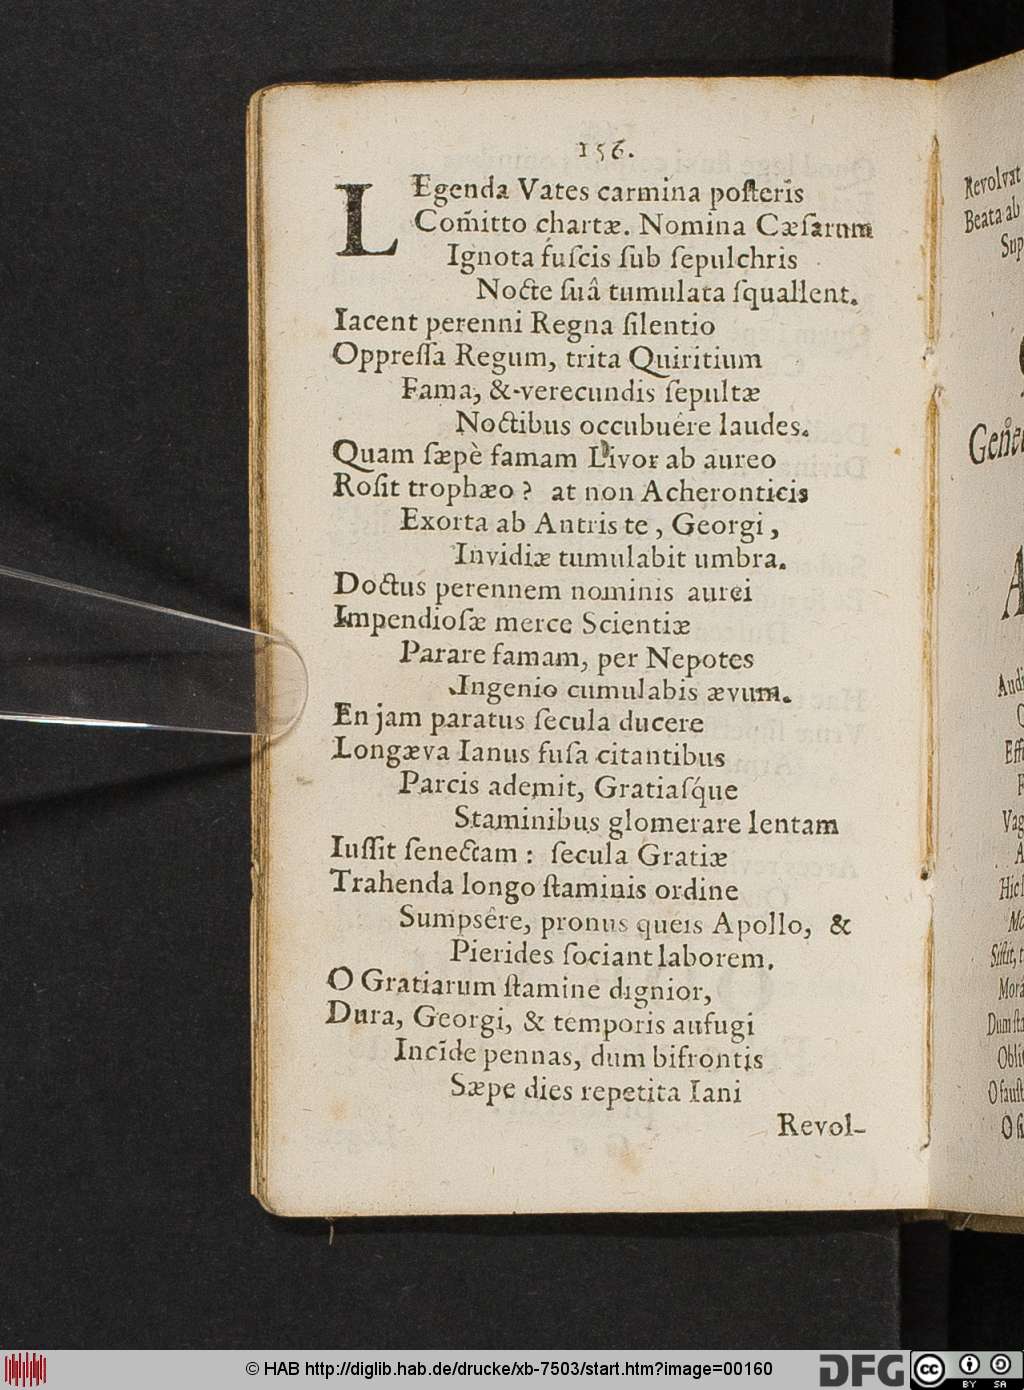 156.
LEgenda Vates carmina posterîs
Com̃itto chartæ. Nomina Cæsarum
Ignota fuscis sub sepulchris
Nocte suâ tumulata squallent.
Iacent perenni Regna silentio
Oppressa Regum, trita Quiritium
Fama, & verecundis sepultæ
Noctibus occubuére laudes.
Quam sæpè famam Livor ab aureo
Rosit trophæo? at non Acheronticis
Exorta ab Antris te, Georgi,
Invidiæ tumulabit umbra.
Doctus perennem nominis aurei
Impendiosæ merce Scientiæ
Parare famam, per Nepotes
Ingenio cumulabis ævum.
En jam paratus secula ducere
Longæva Ianus fusa citantibus
Parcis ademit, Gratiasq́ue
Staminibus glomerare lentam
Iussit senectam: secula Gratiæ
Trahenda longo staminis ordine
Sumpsêre, pronus queis Apollo, &
Pierides sociant laborem.
O Gratiarum stamine dignior,
Dura, Georgi, & temporis aufugi
Incide pennas, dum bifrontis
Sæpe dies repetita Iani
Revol-
Revolvat
Beata ab
Sup
© HAB http://diglib.hab.de/drucke/xb-7503/start.htm?image=00160
DFG
cc
BY SA